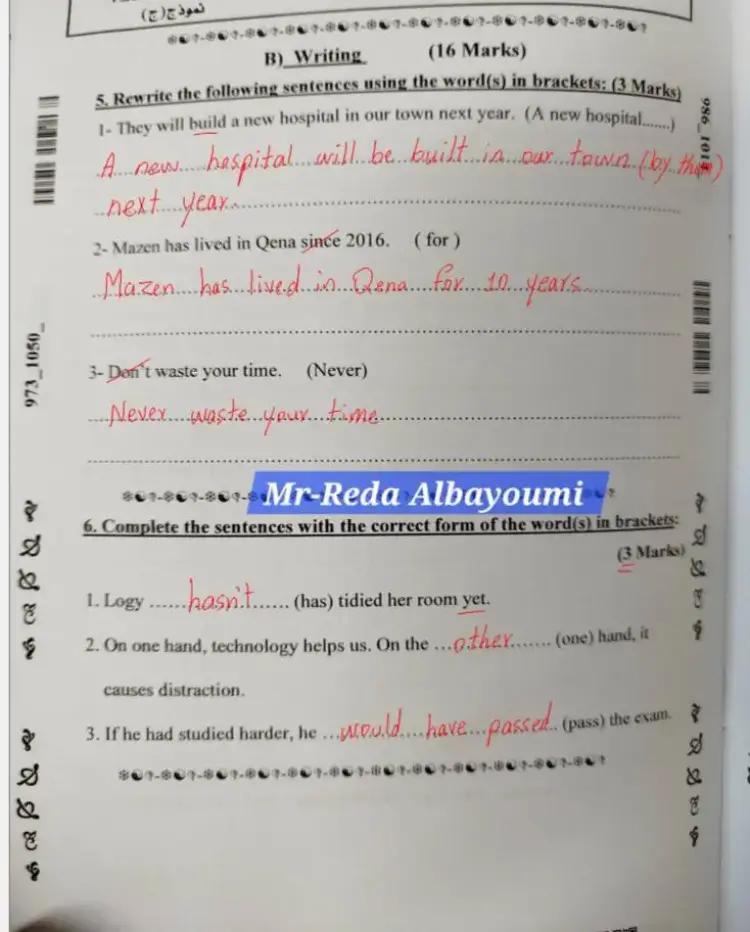 نموذج(ج)
B) Writing (16 Marks)
5. Rewrite the following sentences using the word(s) in brackets: (3 Marks)
1- They will build a new hospital in our town next year. (A new hospital.......)
A new hospital will be built in our town (by them)
next year.
2- Mazen has lived in Qena since 2016. ( for )
Mazen has lived in Qena for 10 years
3- Don't waste your time. (Never)
Never waste your time
Mr-Reda Albayoumi
6. Complete the sentences with the correct form of the word(s) in brackets:
(3 Marks)
1. Logy ......hasn't...... (has) tidied her room yet.
2. On one hand, technology helps us. On the ...other....... (one) hand, it
causes distraction.
3. If he had studied harder, he ...would have passed.. (pass) the exam.
973_1050_